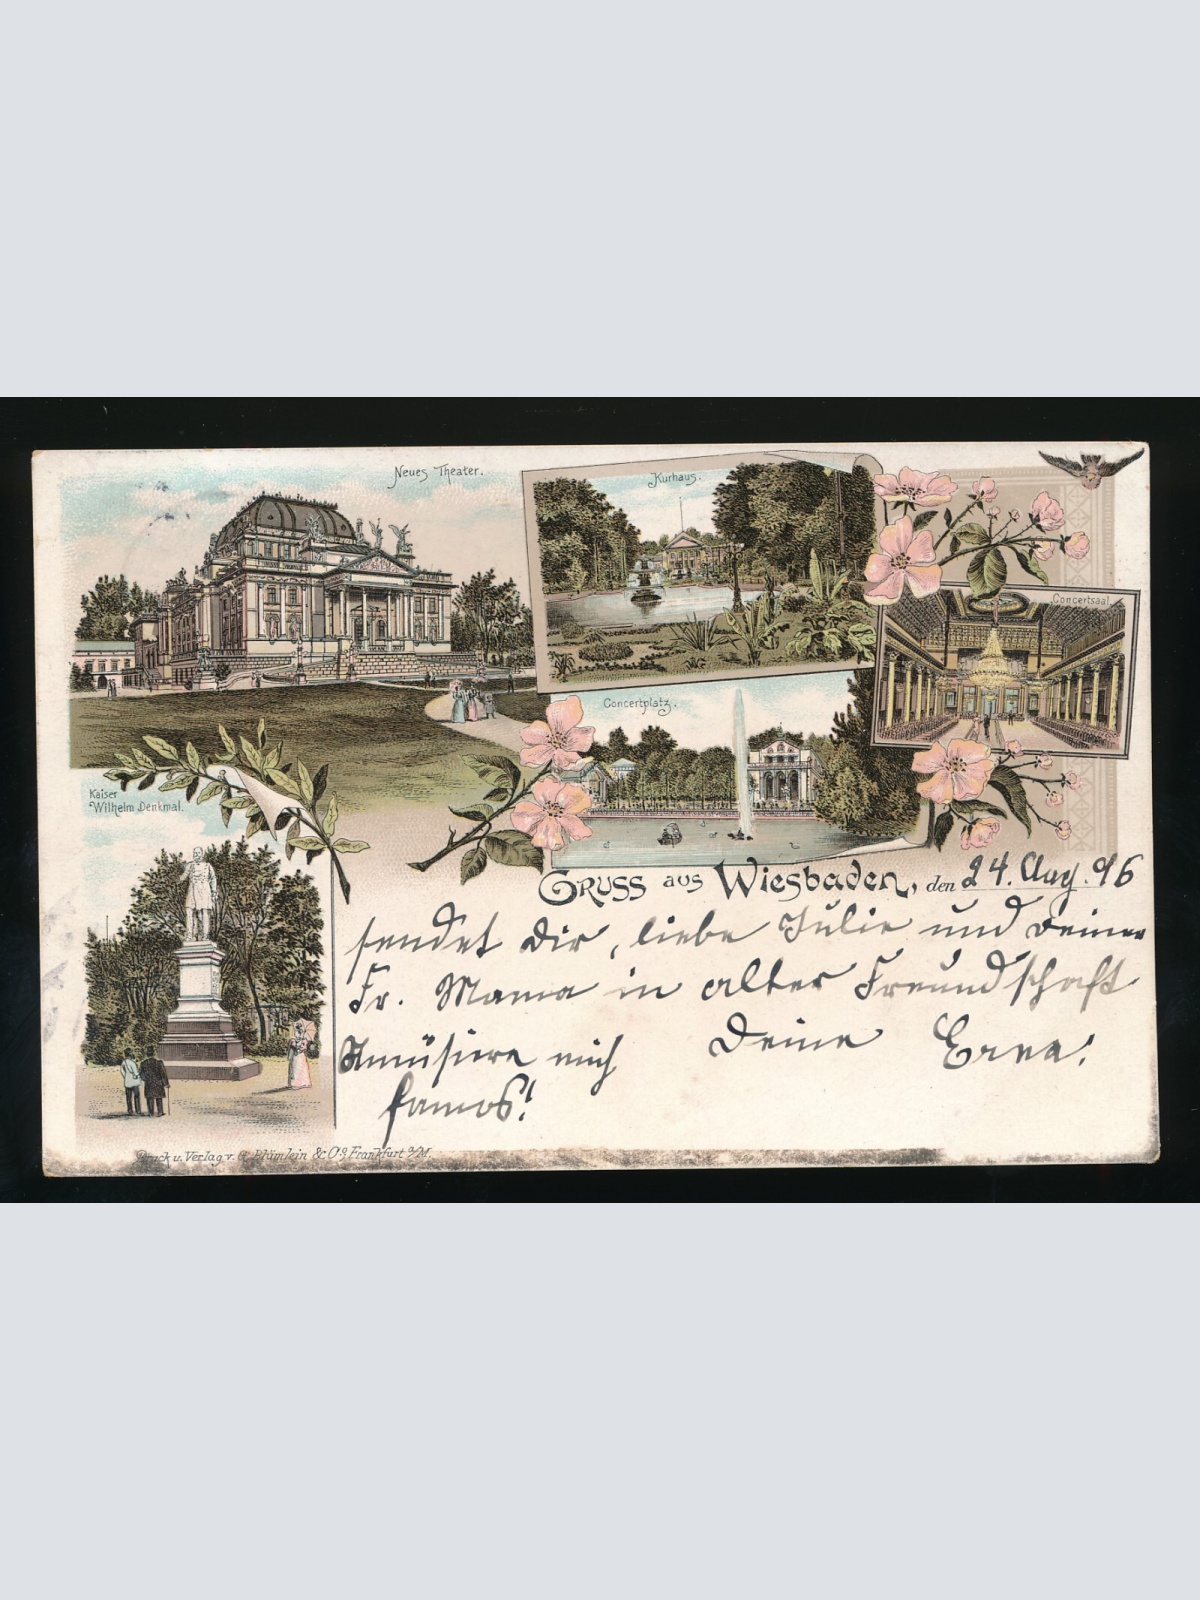 Neues Theater.
Kurhaus.
Concertsaal.
Concertplatz.
Kaiser
Wilhelm Denkmal.
GRUSS aus Wiesbaden, den 24. Aug. 96
sendet Dir, liebe Julie und Deiner
Fr. Mama in alter Freundschaft
Amüsiere mich Deine Erna.
famos!
Druck u. Verlag v. G. Blümlein & Co. Frankfurt a/M.